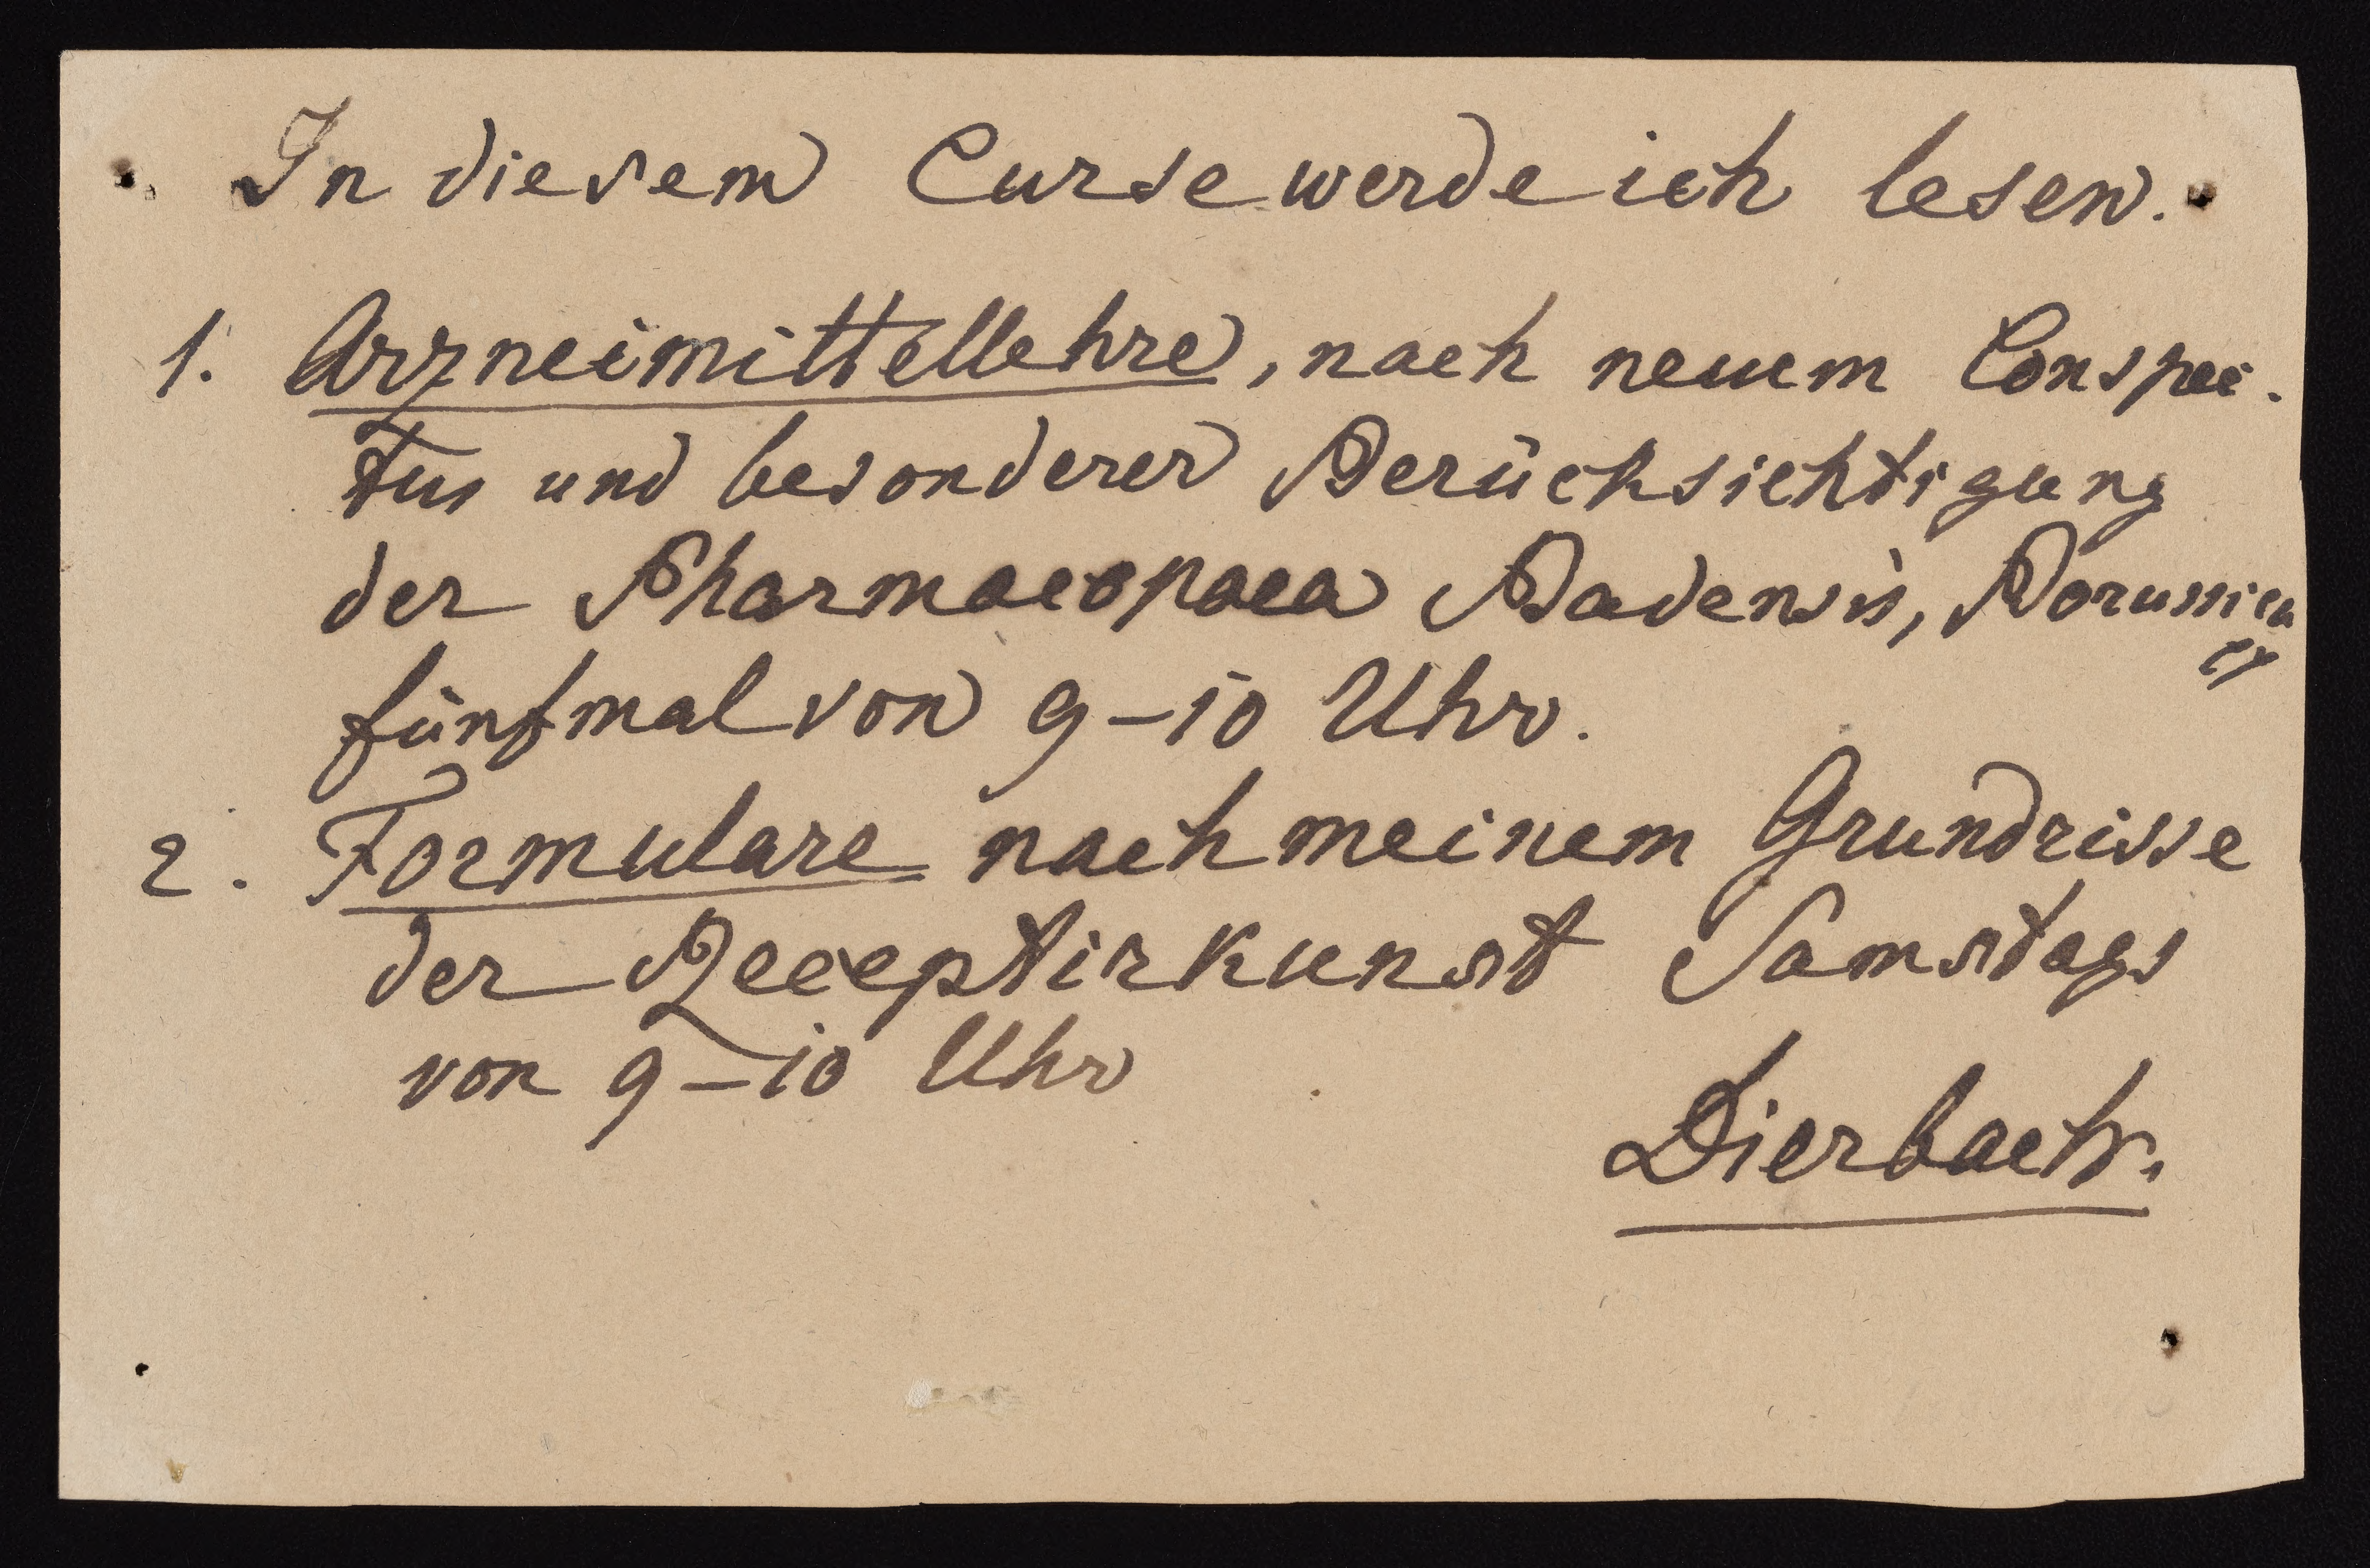 In diesem Curse werde ich lesen.
1. Arzneimittellehre, nach neuem Conspec-
tus und besonderer Berücksichtigung
der Pharmacopaea Badensis, Borussica
fünfmal von 9–10 Uhr.
2. Formulare nach meinem Grundrisse
der Receptirkunst Samstags
von 9–10 Uhr
Dierbach.